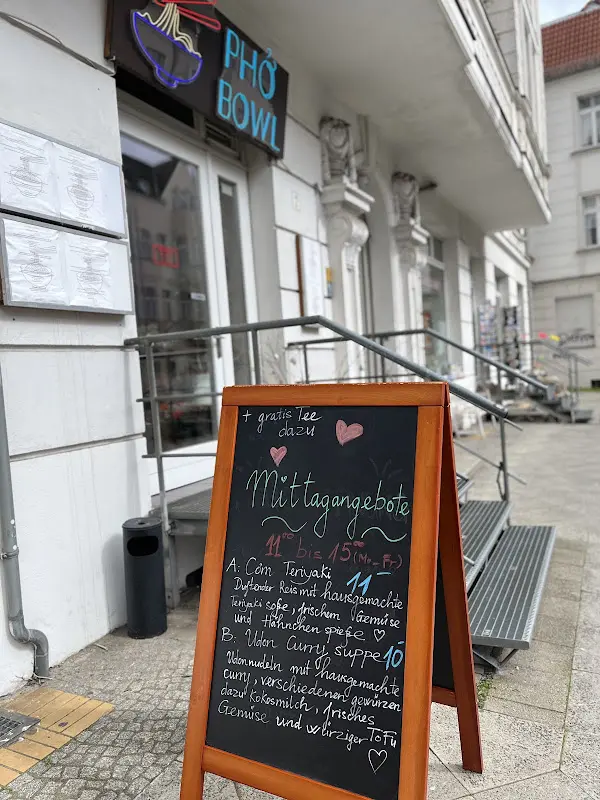 PHỞ
BOWL
+ gratis Tee
dazu
Mittagangebote
11⁰⁰ bis 15⁰⁰ (Mo.-Fr.)
A: Cơm Teriyaki 11
Duftender Reis mit hausgemachte
Teriyaki soße, frischem Gemüse
und Hähnchen spieße
B: Udon Curry suppe 10
Udonnudeln mit hausgemachte
curry, verschiedenen gewürzen
dazu Kokosmilch, frisches
Gemüse und würziger ToFu